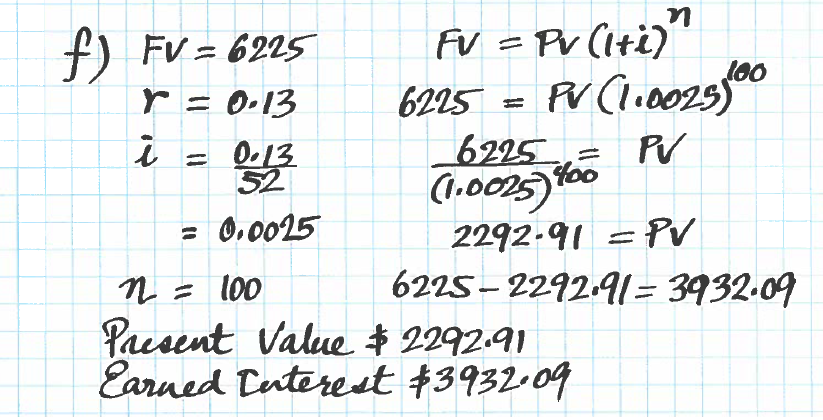 f) FV = 6225
r = 0.13
i = 0.13/52
= 0.0025
n = 100
FV = PV (1+i)^n
6225 = PV (1.0025)^100
6225/(1.0025)^400 = PV
2292.91 = PV
6225 - 2292.91 = 3932.09
Present Value $ 2292.91
Earned Interest $3932.09